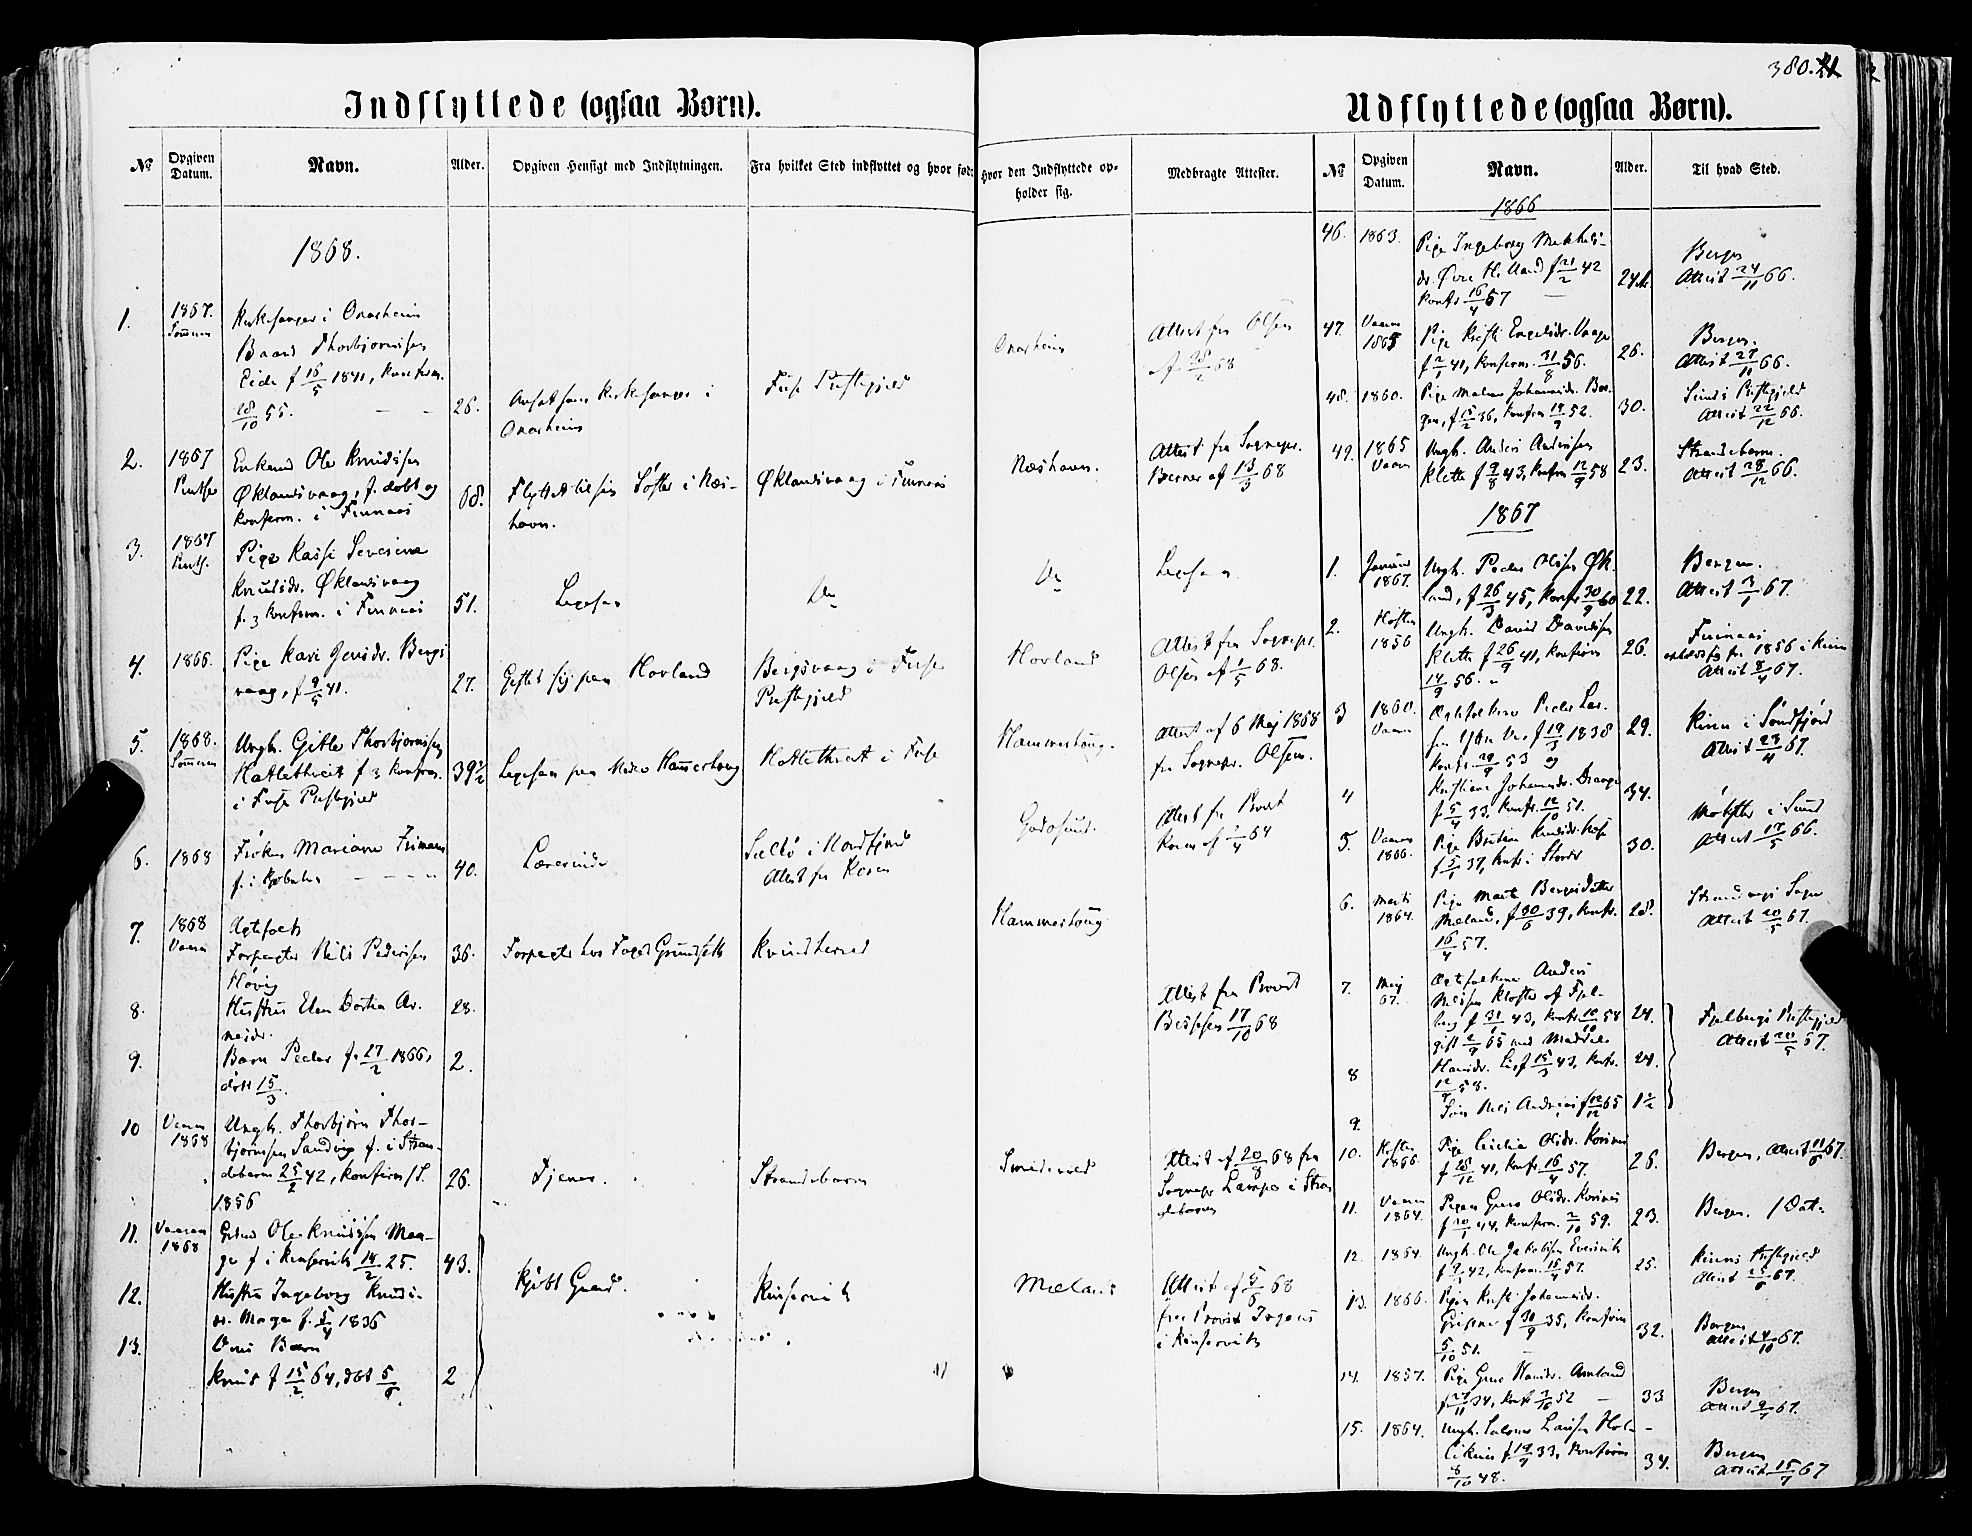 380.
Indflyttede (ogsaa Børn).
No
Opgiven Datum.
Navn.
Alder.
Opgiven Hensigt med Indflytningen.
Fra hvilket Sted indflyttet og hvor fød:
Hvor den Indflyttede opholder sig.
Medbragte Attester.
1868.
1. 1867. Sommeren
Kirkesanger i Onarheim
Baard Thorbjørnsen
Eide f 16/5 1841, konfirm.
28/10 55. 26.
Ansat som Kirkesanger i
Onarheim
Fuse Præstegjeld
Onarheim
Attest fra Olsen
af 28/2 68
2. 1867
Enkemand Ole Knudsen
Øklandsvaag, f. døbt og
konfirm. i Finnaas
68.
Flyttet til sin Søster i Næs-
havn.
Øklandsvaag i Finnaas
Næshavn.
Attest fra Sognepr.
Berner af 13/5 68
3. 1867
Pige Kassi Severine
Knudsdr. Øklandsvaag
f. & konfirm. i Finnaas 51.
Do
Do
4. 1866.
Pige Kari Jensdr. Bergs
vaag, f 9/5 41. 27.
Giftet sig paa Hovland
Bergsvaag i Fuse
Præstegjeld
Hovland
Attest fra Sognepr.
Olsen af 1/5 68.
5. 1868. Sommeren
Ungk. Gitle Thorbjørnsen
Hatlethveit f & konfirm.
i Fuse Præstegjeld
39½
Hatlethveit i Fuse
Hammerhaug.
Attest af 6 Maj 1868
fra Sognepr. Olsen.
6. 1868
Frøken Mariane
40.
Lærerinde
Selø i Nordfjord
Attest fra
Godøsund.
Attest fra Provst
af 1/4 64
7. 1868 Vaaren
Ægtefolk
Forpagter Nils Pedersen
Høvig
36.
Forpagter hos Foged Grundseth
Kvindherred
Hammerhaug
8. Hustru Elen Dortea Ar-
nesdr. 28.
Attest fra Provst
17/10 68
9. Barn Peder f. 27/2 1866,
døbt 15/3. 2.
10 Vaaren 1868
Ungk. Thorbjørn Thor-
bjørnsen Sandvig f. i Stran-
debarm 25/2 42, konfirm i S.
1856
26.
Tjener.
Strandebarm
Attest af 20/8 68 fra
Sognepr Lampe i Stran
debarm
11. Vaaren 1868
Gbrd Ole Knudsen Maa-
ge f i Kinservik 14/2 25. 43.
Kjøbt Gaard.
Kinservik
Mæland
Attest af 5/6 68
fra Provst
i Kinservik
12. Hustru Ingeborg Knuds-
dr. Mage f. 5/4 1836
13. Deres Barn
Knud f 15/2 64, døbt 5/6. 2
Udflyttede (ogsaa Børn).
No
Opgiven Datum.
Navn.
Alder.
Til hvad Sted.
1866
46. 1863.
Pige Ingeborg Mikkels-
dr. Øvre Helland f 21/2 42
konfr 16/4 57
24.
Bergen
Attest 24/11 66.
47. Vaaren 1865
Pige Kirsti Engelsdr. Vaage
f 2/1 41, konfirm. 31/8 56. 26.
Bergen.
Attest 27/11 66.
48. 1860.
Pige Malene Johannesdr. Ber-
gen, f 15/2 36, konfirm 19/9 52. 30.
Sunds Præstegjeld
Attest 22/12 66.
49. 1865 Vaaren
Ungk. Anders Andersen
Klette f 9/8 43, konfirm 12/9 58 23.
Strandebarm.
Attest 28/12 66.
1867
1. Januar 1867.
Ungk. Peder Olsen Øk-
land, f 26/3 45, konfr 30/9 60 22.
Bergen.
Attest 3/1 67.
2. Høsten 1856
Ungk. David Davidsen
Klette f 26/9 41, konfirm
14/9 56. 26.
Finnaas
Attest 8/4 67.
3 1860. Vaaren
Ægtefolkene Peder Lar-
sen f 19/3 1838
konfr. 29/9 53 og 29.
Kinn i Søndfjord
Attest 23/4 67.
4 Kristiane Johannesdr. Drange
f 5/4 33, konfr. 12/10 51. 34.
5. Vaaren 1866.
f 5/1 37, konfr i Stord 30.
i Sund
Attest 17/5 66.
6. Marts 1864.
Pige Marta Bergesdatter
Mæland, f 30/6 39, konfr.
16/4 57. 28.
Attest 20/5 67.
7. Maj 67.
Ægtefolkene Anders
Nilsen Kloster af Fjel-
berg f 31/1 43, konfr 10/10 58
gift 2/9 65 med 24.
8 Hansdr. Li, f 15/3 43, konfr.
12/9 58. 24.
Fjelbergs Præstegjeld
Attest 20/5 67.
9. Søn Nils Andersen f 12/12 65 1½
10. Høsten 1866.
Pige Cicilia Olsdr. Korsnes
f 28/12 41, konfr. 16/4 57. 26.
Bergen, Attest 11/6 67.
11. Vaaren 1864.
Pigen Guro Olsdr. Korsnes
f 20/1 44, konfirm. 2/10 59. 23.
Bergen.
12. 1864.
Ungk. Ole Jakobsen Eversvik
f 9/3 42, konfirm. 16/4 57. 25.
Kinns Præstegjeld
Attest 25/6 67.
13. 1866.
Pigen Kirsti Johannesdr.
f 30/9 35, konfirm
5/10 51. 32.
Bergen
Attest 4/10 67.
14. 1857.
Pige Guro Hansdr. Amland
f 27/11 34, konfr 3/10 52 33
Bergen
Attest 9/7 67.
15. 1864.
Ungk. Salomon Larsen Hol-
f 19/9 33, konfirm
8/10 48. 34.
Bergen
Attest 15/7 67